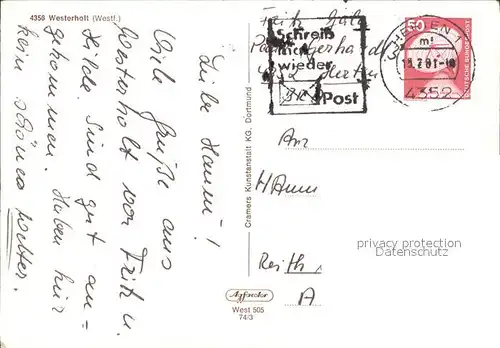 4358 Westerholt (Westf.)
Liebe Hanni!
Viele Grüße aus
Westerholt von Fritz u.
Hilde. Sind gut an=
gekommen. Haben hier
kein schönes Wetter.
Cramers Kunstanstalt KG, Dortmund
Schreib
mal
wieder
Post
Fritz
4352 Herten
HERTEN 1
mf
13.7.81-18
4352
50
DEUTSCHE BUNDESPOST
An
Reith
A
privacy protection
watermark
West 505
74/3